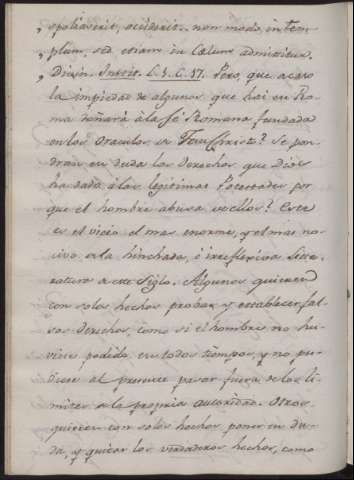 , spoliaverit, occiderit.. non modo, in tem
, plum, sed etiam in Cœlum admittitur.
, Divin. Instit. L. 5. C. 17. Pero, que acaso
la impiedad de algunos que hai en Ro
ma dañará a la fé Romana fundada
en los Oraculos de Jesuchristo? Se pon
dran en duda los derechos que Dios
ha dado á las legitimas Potestades por
que el hombre abusa de ellos? Este
es el vicio el mas enorme, y el mas no
civo de la hinchada, é irreflexiva Lite
ratura de este Siglo. Algunos quieren
con solos hechos probar, y establecer fal
sos derechos, como si el hombre no hu
viese podido en todos tiempos, y no pu
diese al presente pasar fuera de los li
mites de la propria autoridad. Otros
quieren con solos hechos poner en du
da, y quitar los verdaderos hechos, como